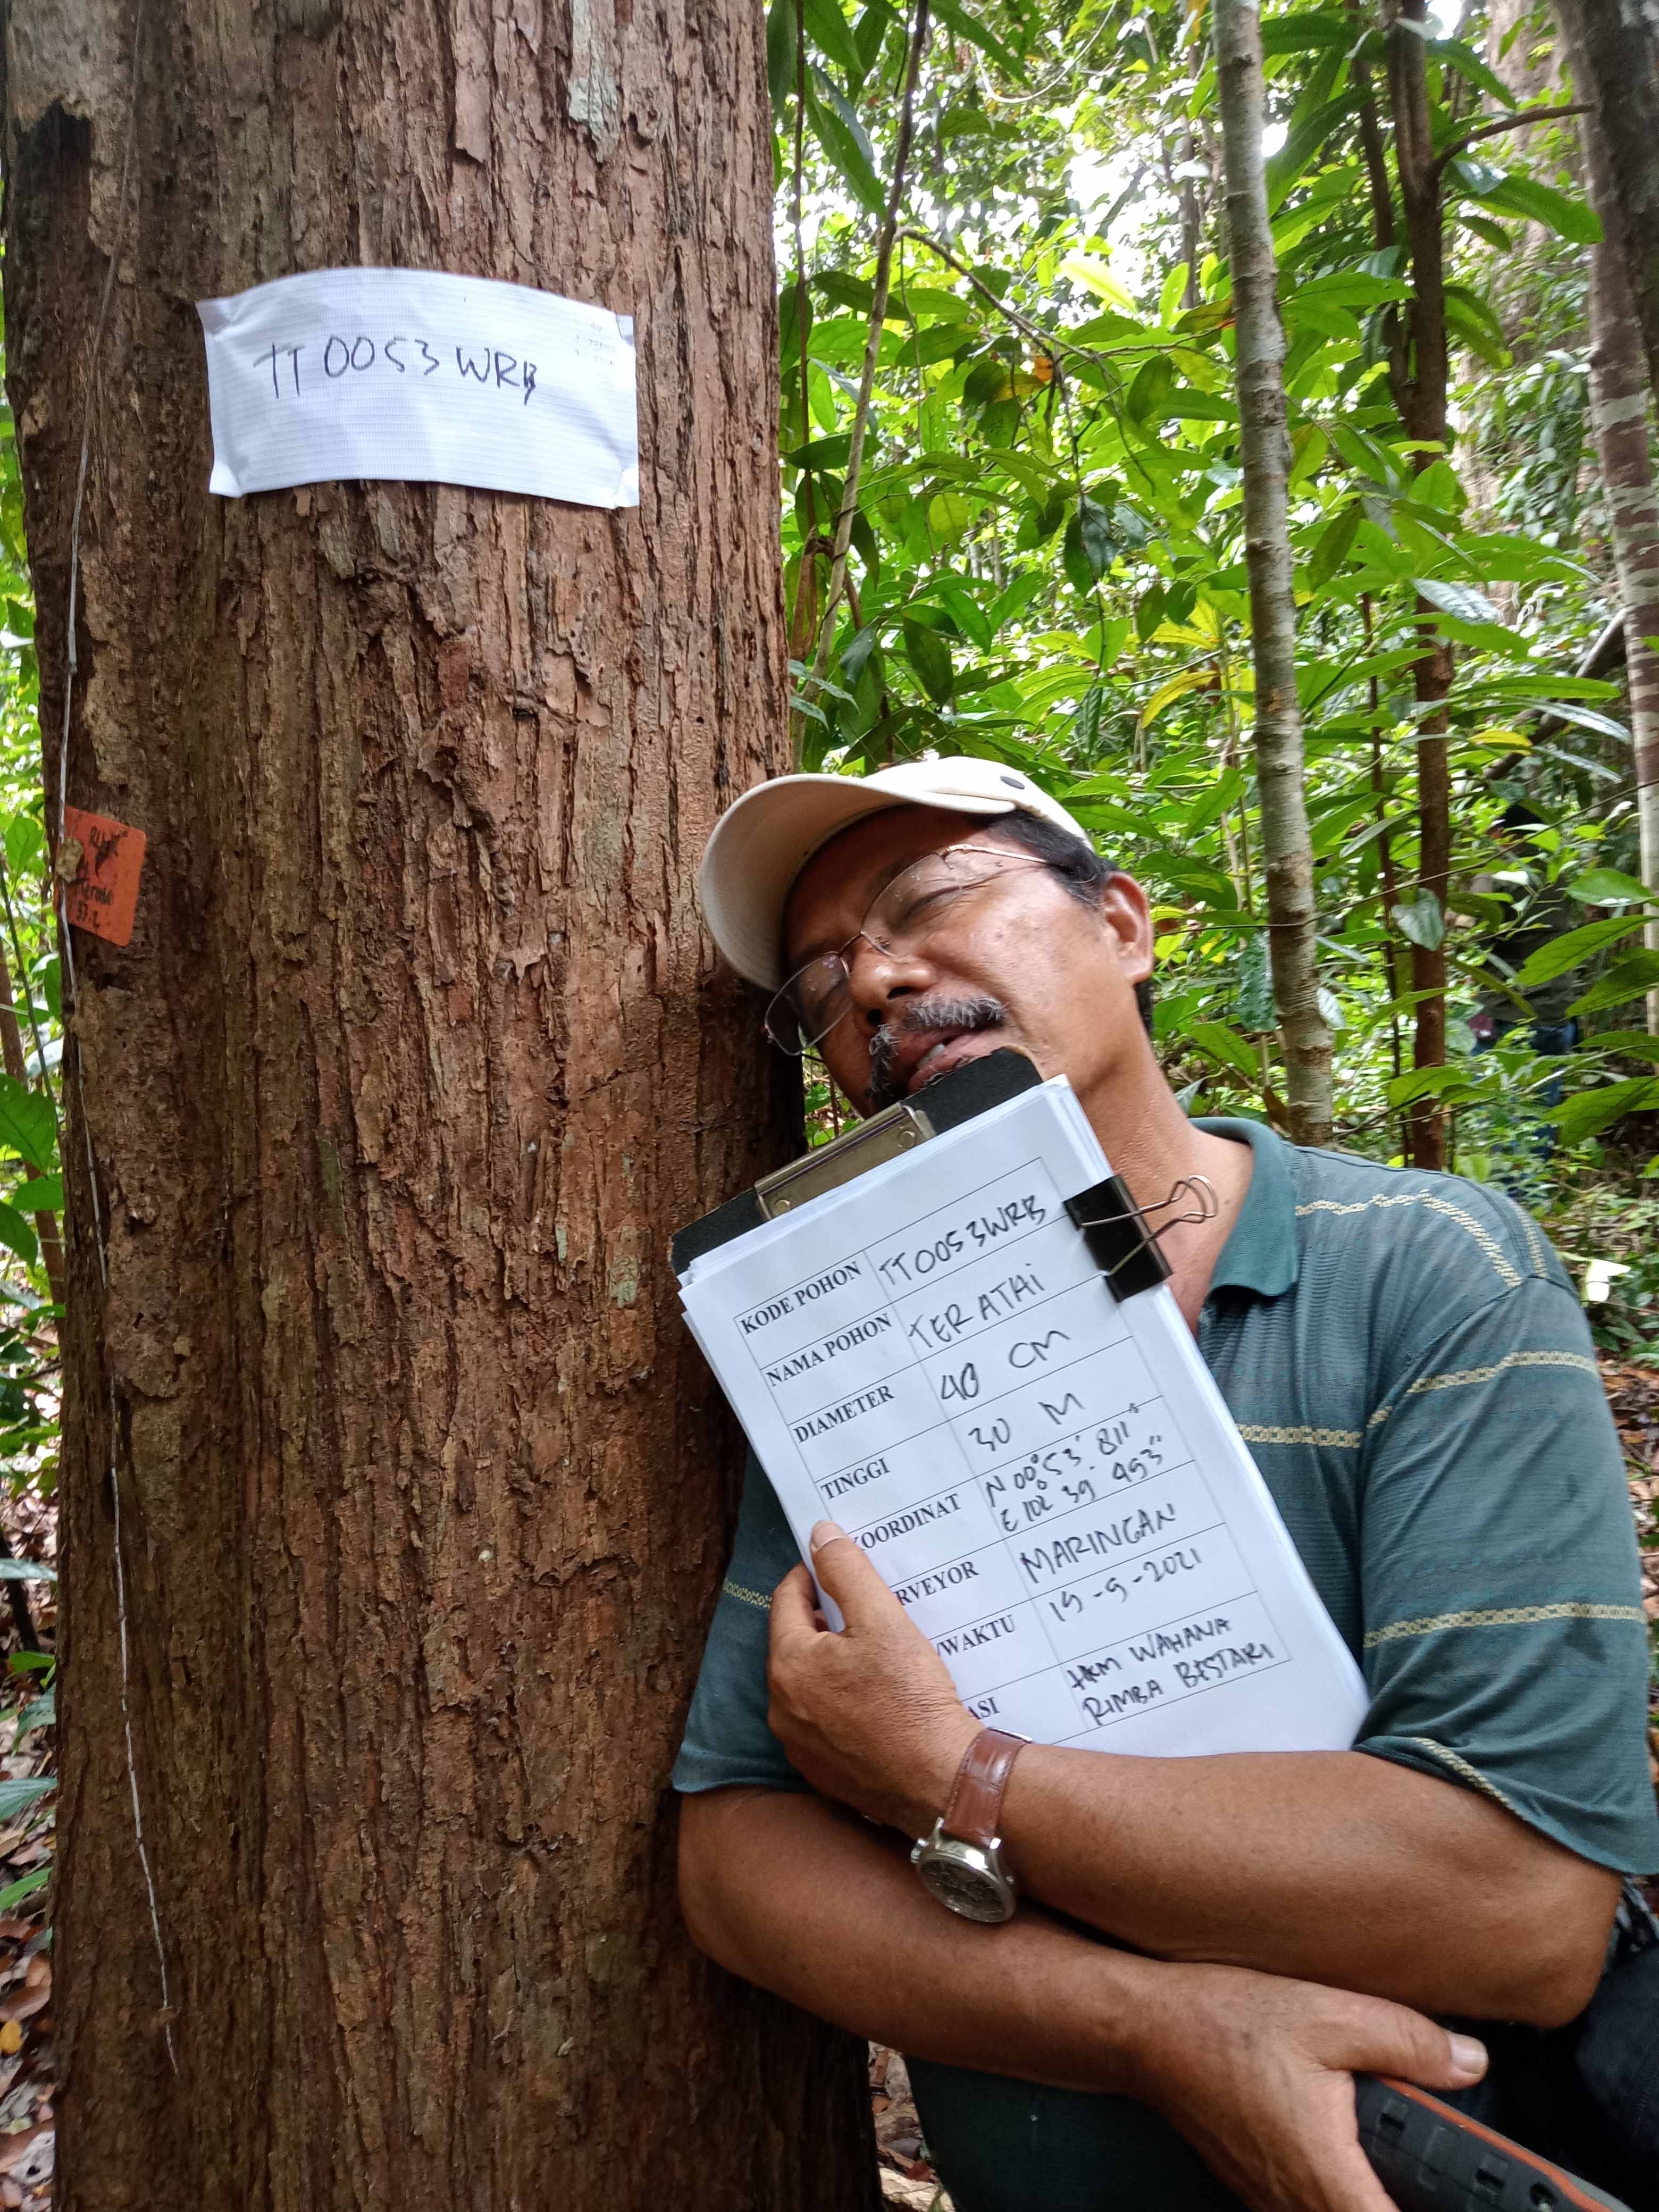 TT 0053 WRB
57.2
KODE POHON TT0053WRB
NAMA POHON TERATAI
DIAMETER 40 CM
TINGGI 30 M
KOORDINAT N 00°53'. 811"
E 102°39 493"
RVEYOR MARINGAN
/WAKTU 19-9-2021
ASI HKM WAHANA
RIMBA BESTARI